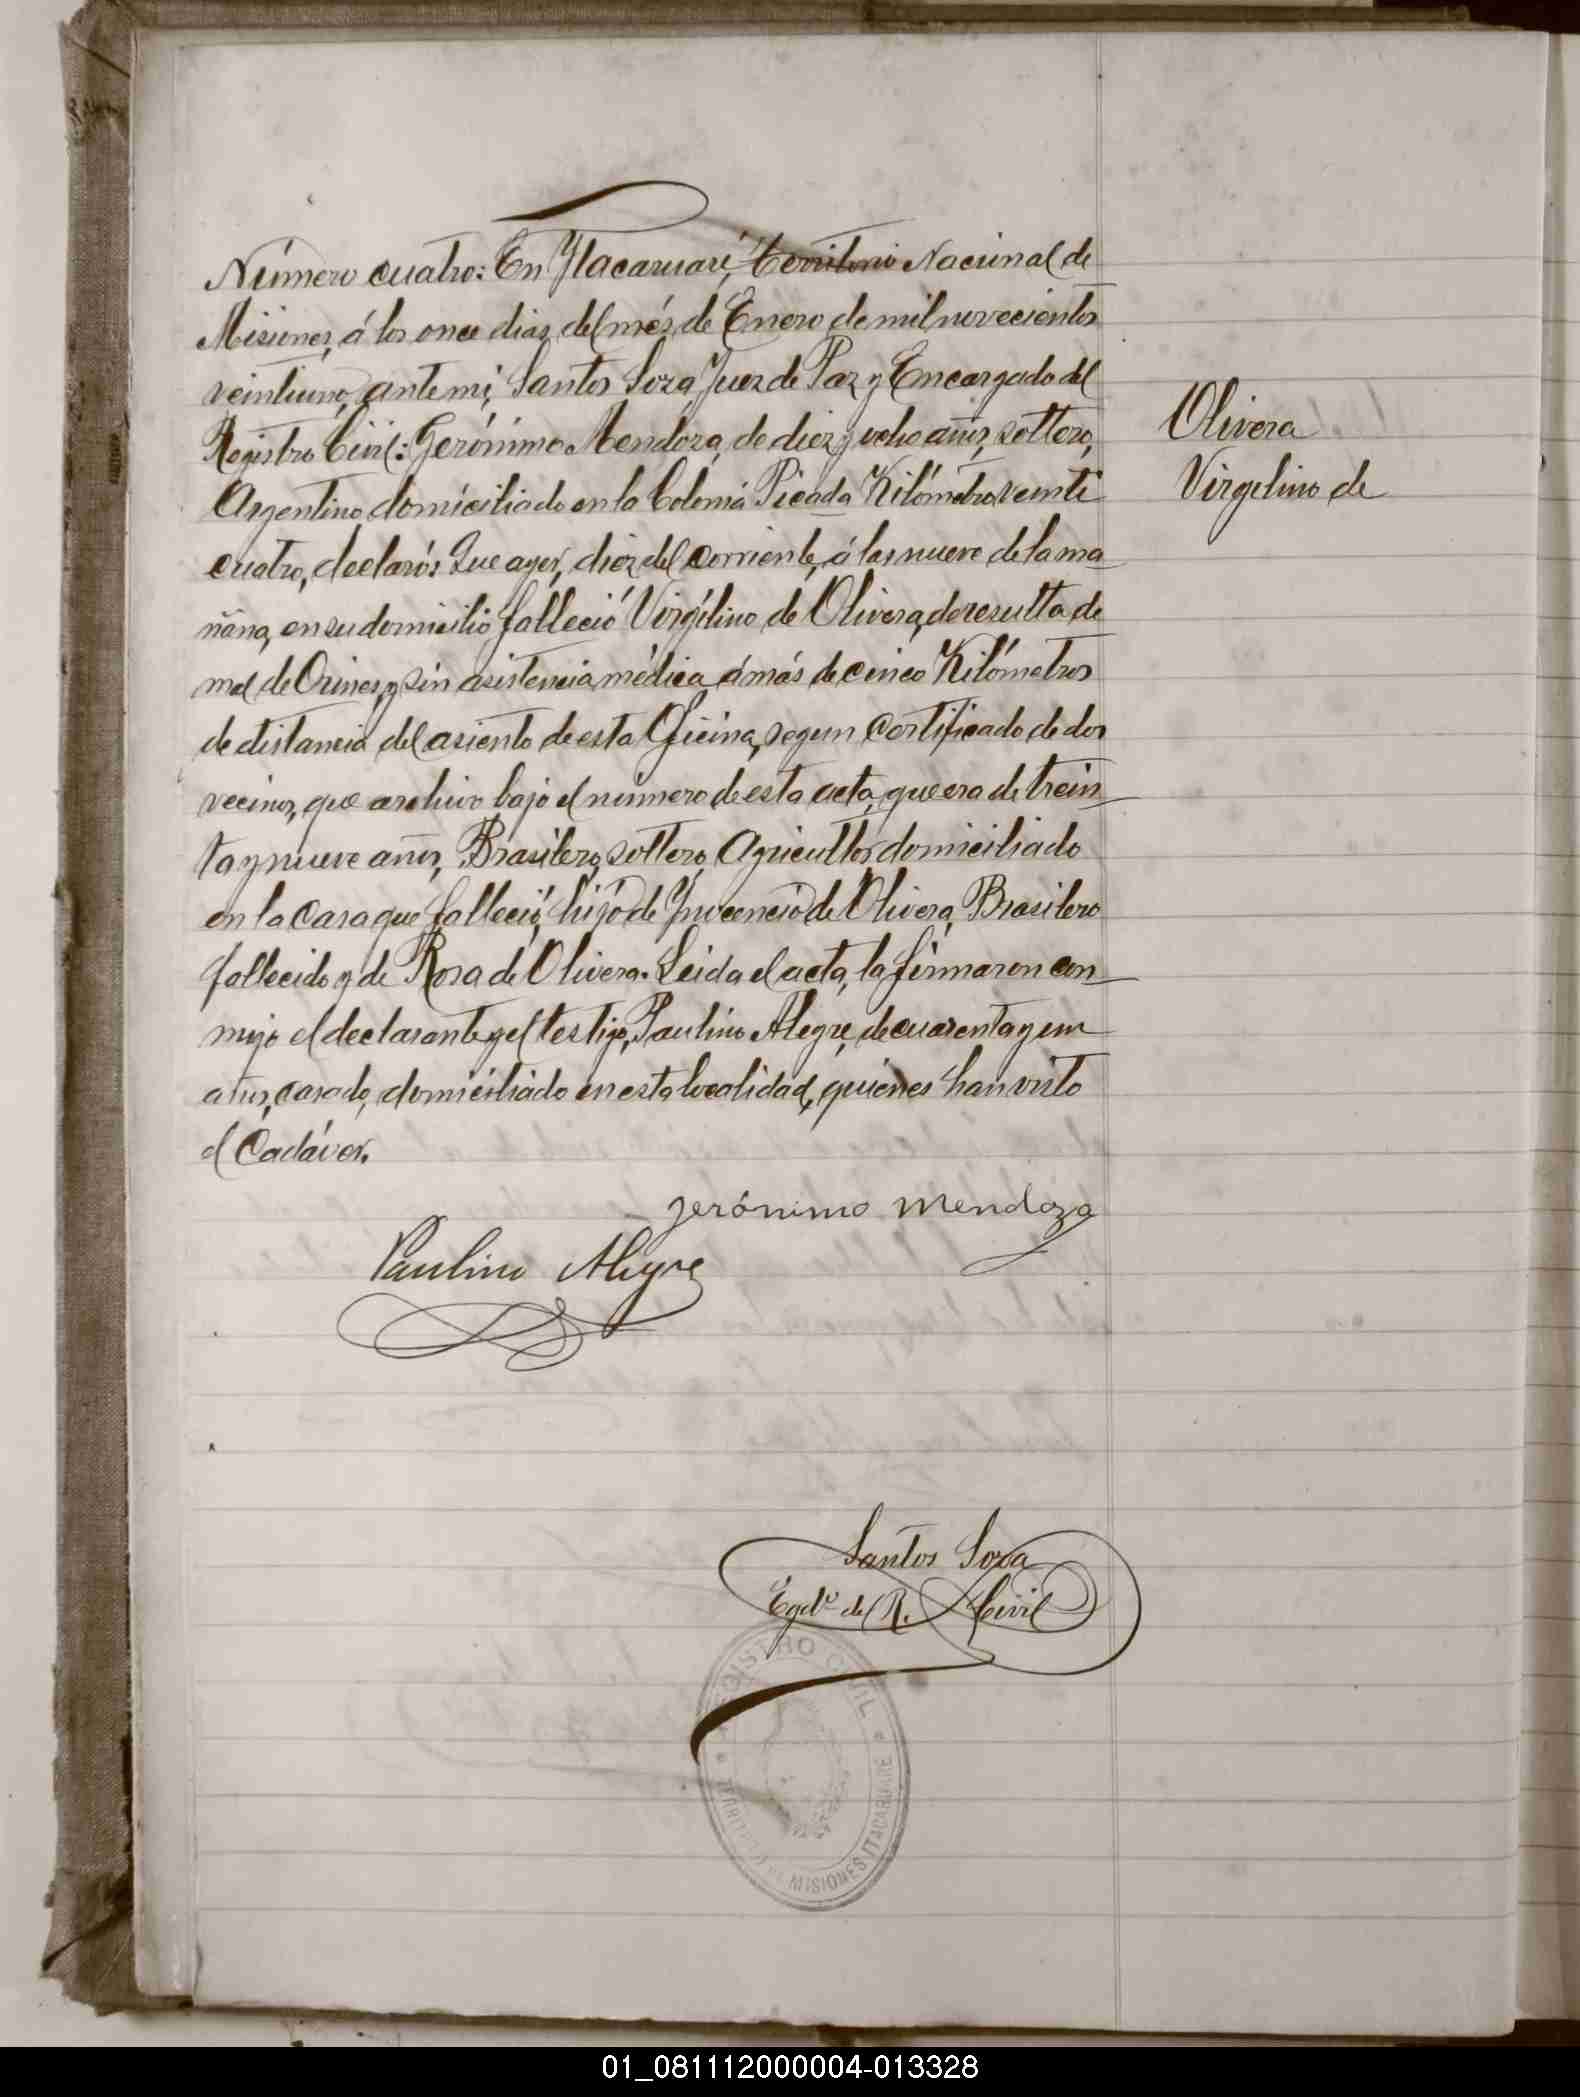 Número cuatro: En Ytacaruaré, Territorio Nacional de
Misiones, á los once dias del més de Enero de mil novecientos
veintiuno, ante mi, Santos Soza, Juez de Paz y Encargado del
Registro Civil: Gerónimo Mendoza, de diez y ocho años, soltero,
Argentino domiciliado en la Colonia Picada Kilómetro veinti
cuatro, declaró: Que ayer, diez del corriente, á las nueve de la ma
ñana, en su domicilio falleció Virgilino de Olivera, de resulta de
mal de Orines, y sin asistencia médica á más de cinco Kilómetros
de distancia del asiento de esta Oficina, segun certificado de dos
vecinos, que archivo bajo el número de esta acta, que era de trein
ta y nueve años, Brasilero, soltero, Agricultor domiciliado
en la casa que falleció, hijo de Ynocencio de Olivera, Brasilero
fallecido y de Rosa de Olivera. Leida el acta, la firmaron con
migo el declarante y el testigo, Paulino Alegre, de cuarenta y un
años, casado, domiciliado en esta localidad, quienes han visto
el Cadáver.
Jerónimo Mendoza
Paulino Alegre
Santos Soza
Egdo. del R. Civil
REGISTRO CIVIL
TERRITORIO DE MISIONES ITACARUARE
Olivera
Virgilino de
01_081112000004-013328